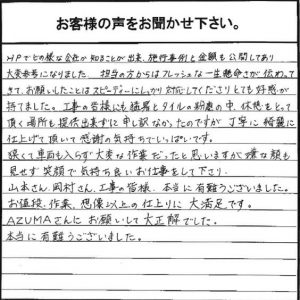 お客様の声をお聞かせ下さい。
HPでどの様な会社か知ることが出来、施行事例と金額も公開してあり
大変参考になりました。担当の方からはフレッシュな一生懸命さが伝わって
きて、お願いしたことはスピーディーにしっかり対応してくださりとても好感が
持てました。工事の皆様にも猛暑とタイルの粉塵の中、休憩をとって
頂く場所も提供出来ずに申し訳なかったのですが丁寧に綺麗に
仕上げて頂いて感謝の気持ちでいっぱいです。
狭くて車両も入らず大変な作業だったと思いますが嫌な顔も
見せず笑顔で気持ち良いお仕事をして下さり
山本さん、岡村さん、工事の皆様、本当に有難うございました。
お値段、作業、想像以上の仕上りに大満足です。
AZUMAさんにお願いして大正解でした。
本当に有難うございました。